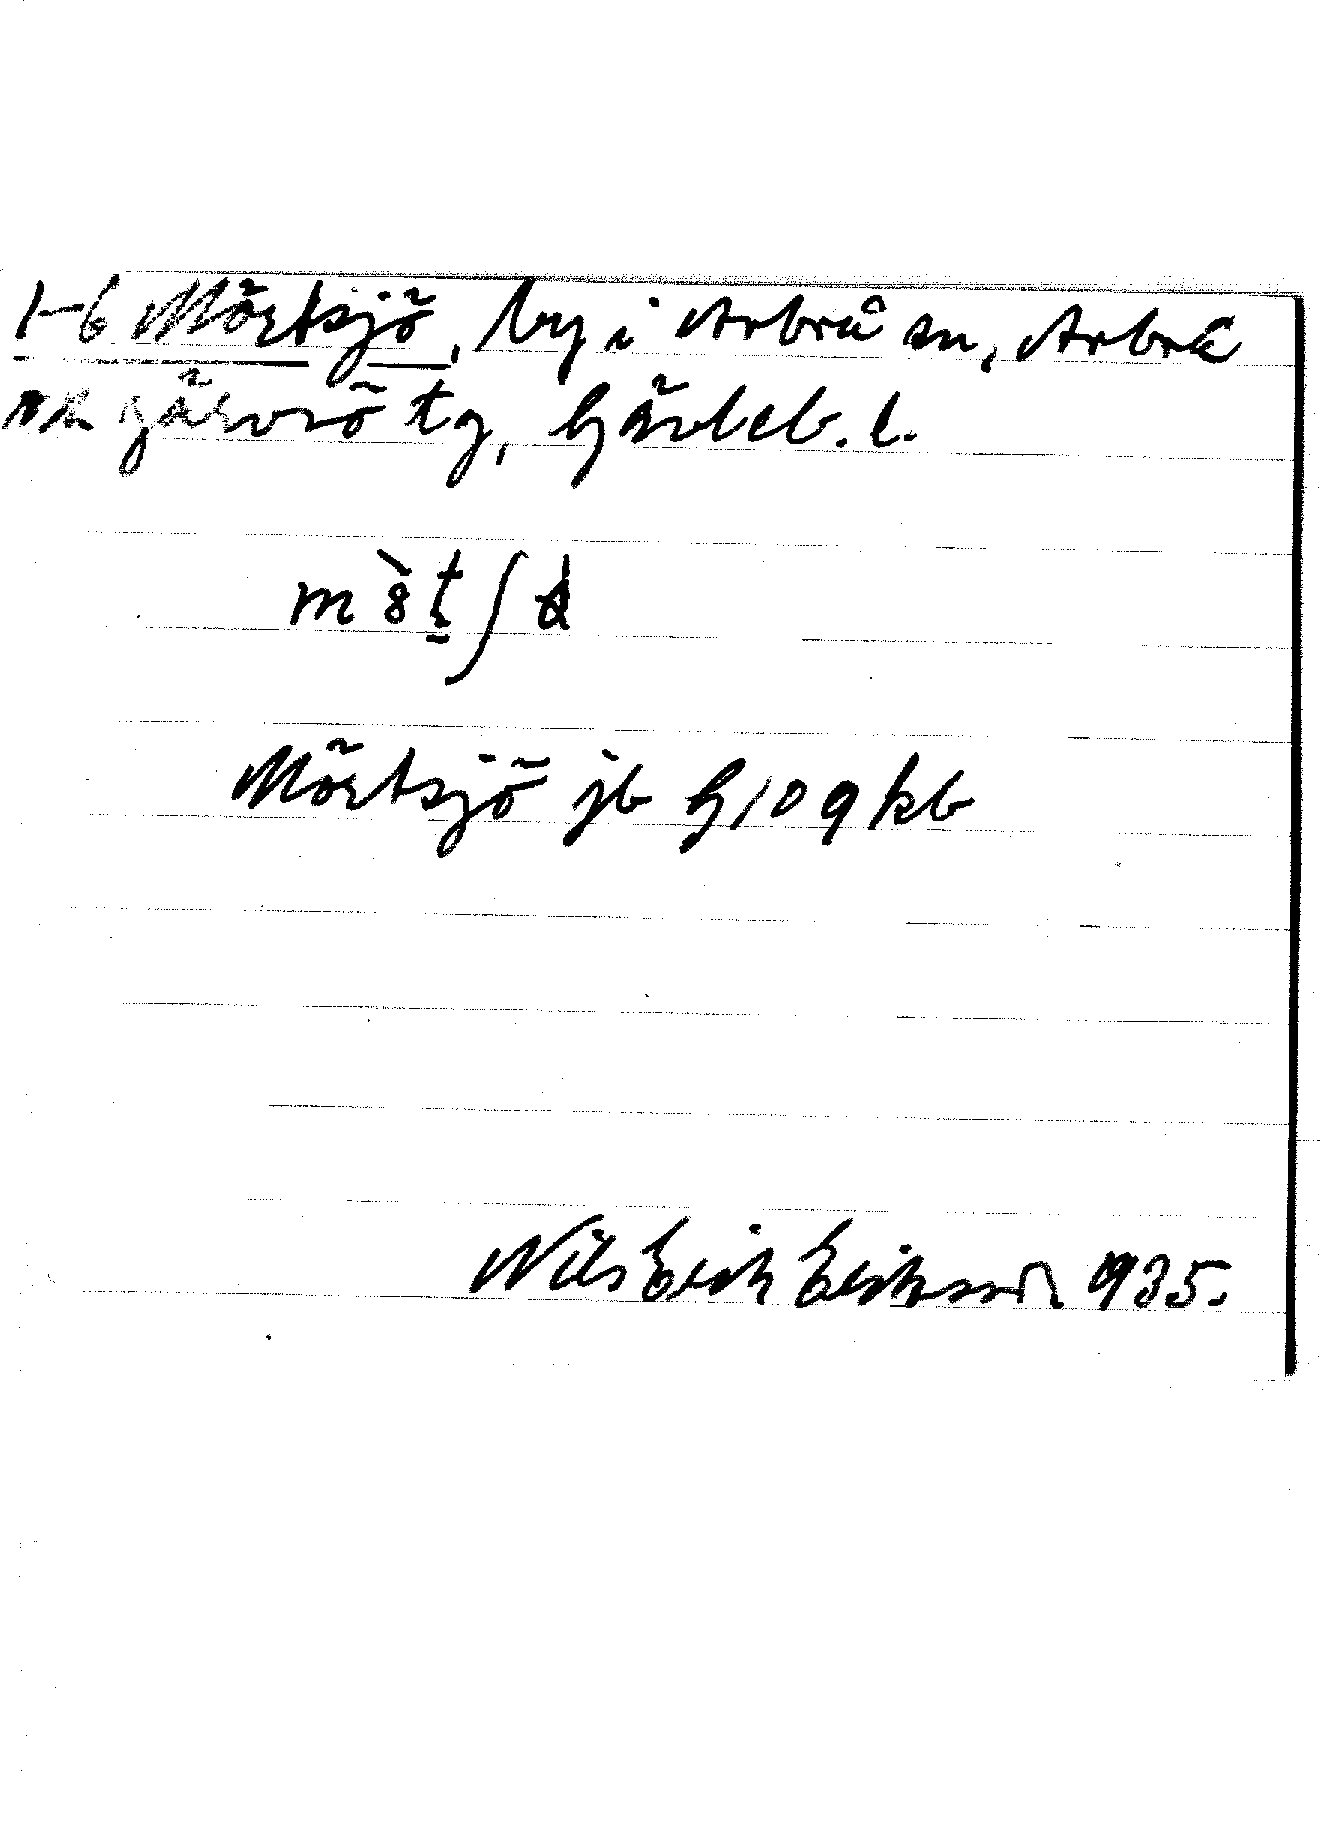 1-6 Mörtsjö, by i Arbrå sn, Arbrå
och Järvsö tg, Gävleb. l.
Mörtsjö jb G 109 kb
Nils Erik Eriksson 1935.